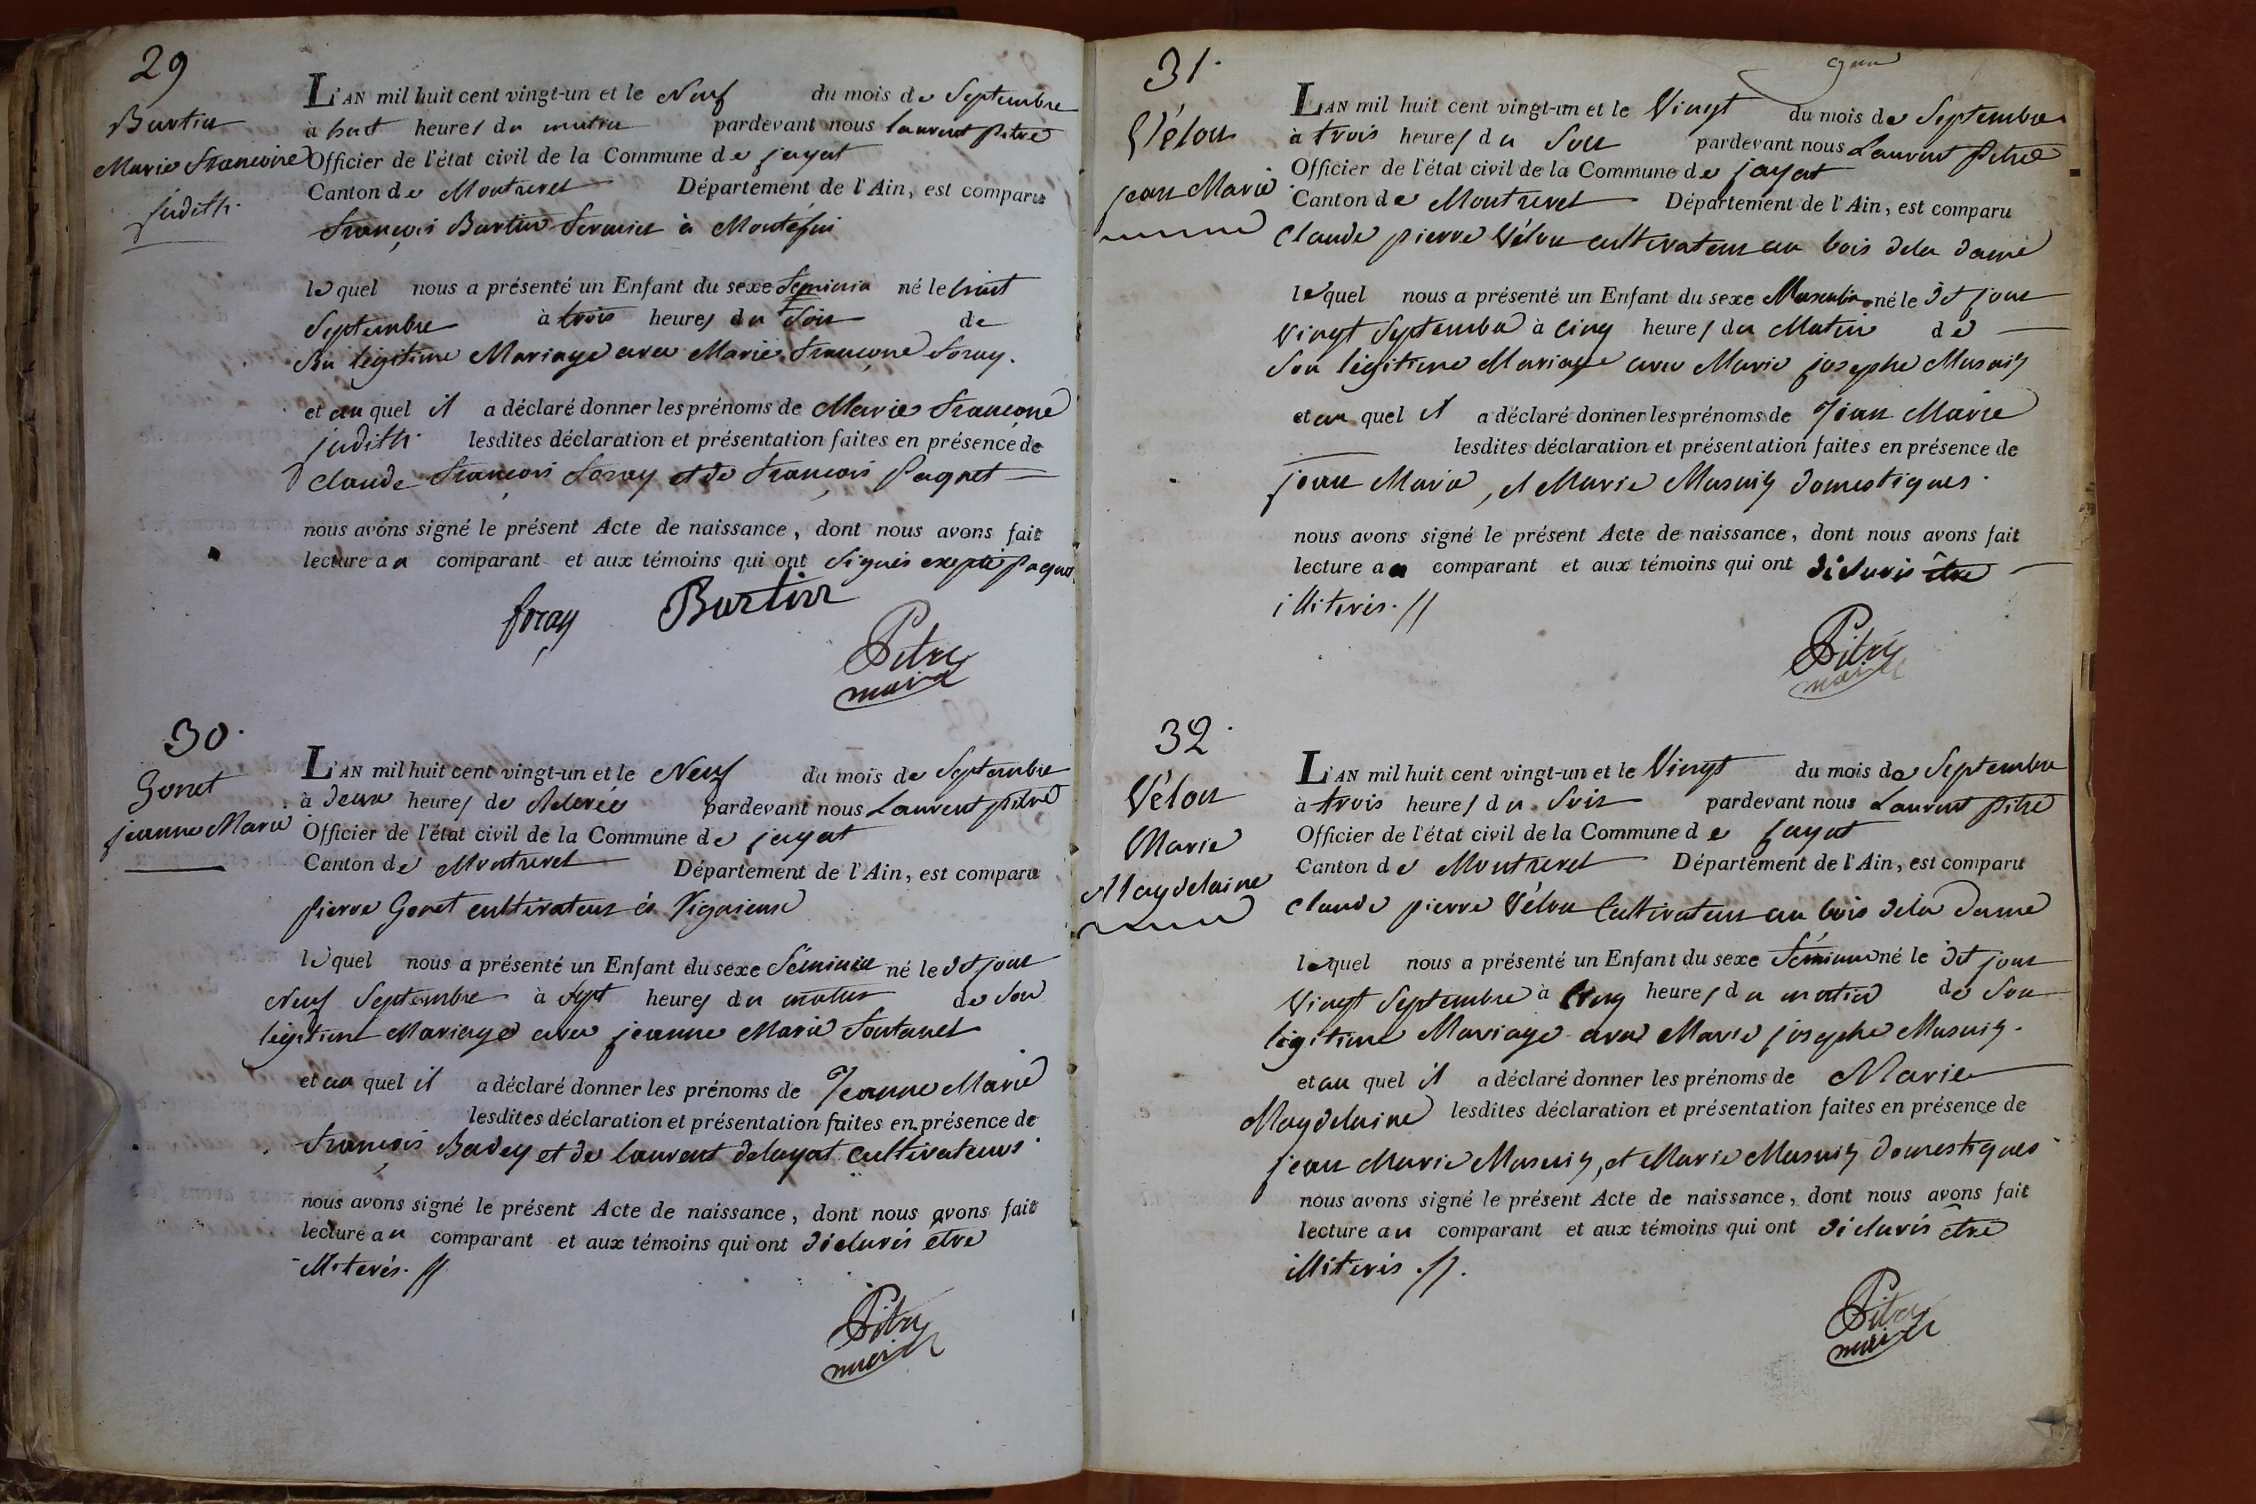 29
Burtin
Marie Francoise
Judith.
L'AN mil huit cent vingt-un et le Neuf du mois de Septembre
à huit heures du matin pardevant nous Laurent Pitre
Officier de l'état civil de la Commune de jayat
Canton de Montrevel Département de l'Ain, est comparu
François Burtin fermier à Montéfin
lequel nous a présenté un Enfant du sexe féminin né le huit
Septembre à trois heures du soir de
Son légitime Mariage avec Marie Françoise foray.
et au quel il a déclaré donner les prénoms de Marie Françoise
judith lesdites déclaration et présentation faites en présence de
Claude François foray et de François Paquet
nous avons signé le présent Acte de naissance, dont nous avons fait
lecture au comparant et aux témoins qui ont signés excepté Paquet
foray Burtin
Pitre
maire
30.
Gonet
jeanne Marie
L'AN mil huit cent vingt-un et le Neuf du mois de Septembre
à deux heures de Relevée pardevant nous Laurent Pitre
Officier de l'état civil de la Commune de jayat
Canton de Montrevel Département de l'Ain, est comparu
pierre Gonet cultivateur
lequel nous a présenté un Enfant du sexe féminin né le dt jour
Neuf Septembre à sept heures du matin de Son
légitime Mariage avec jeanne Marie fontanel
et au quel il a déclaré donner les prénoms de Jeanne Marie
lesdites déclaration et présentation faites en présence de
François Badey et de laurent delayat cultivateurs.
nous avons signé le présent Acte de naissance, dont nous avons fait
lecture au comparant et aux témoins qui ont déclarés être
illiterés. //
Pitre
maire
31.
Vélon
jean Marie
L'AN mil huit cent vingt-un et le Vingt du mois de Septembre
à trois heures du Soir pardevant nous Laurent Pitre
Officier de l'état civil de la Commune de jayat
Canton de Montrevel Département de l'Ain, est comparu
Claude pierre Vélon cultivateur au bois dela dame
lequel nous a présenté un Enfant du sexe Masculin né le dt jour
Vingt Septembre à cinq heures du Matin de
Son légitime Mariage avec Marie josephe Musuiy
et au quel il a déclaré donner les prénoms de Jean Marie
lesdites déclaration et présentation faites en présence de
jean Marie, et Marie Musuiy domestiques.
nous avons signé le présent Acte de naissance, dont nous avons fait
lecture au comparant et aux témoins qui ont déclarés être
illiterés. //
Pitre
maire
32.
Vélon
Marie
Magdelaine
L'AN mil huit cent vingt-un et le Vingt du mois de Septembre
à trois heures du Soir pardevant nous Laurent Pitre
Officier de l'état civil de la Commune de jayat
Canton de Montrevel Département de l'Ain, est comparu
Claude pierre Vélon Cultivateur au bois dela dame
lequel nous a présenté un Enfant du sexe féminin né le dt jour
Vingt Septembre à cinq heures du matin de Son
légitime Mariage avec Marie josephe Musuiy.
et au quel il a déclaré donner les prénoms de Marie
Magdelaine lesdites déclaration et présentation faites en présence de
jean Marie Musuiy, et Marie Musuiy domestiques
nous avons signé le présent Acte de naissance, dont nous avons fait
lecture au comparant et aux témoins qui ont déclarés être
illiterés. //.
Pitre
maire